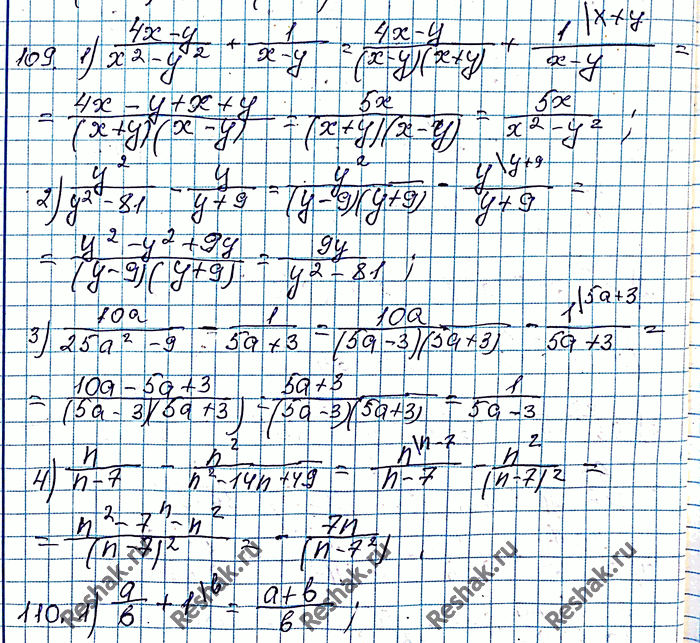 109. 1) (4x-y)/(x²-y²) + 1/(x-y) = (4x-y)/((x-y)(x+y)) + 1\x+y/(x-y) =
= (4x-y+x+y)/((x+y)(x-y)) = 5x/((x+y)(x-y)) = 5x/(x²-y²) ;
2) y²/(y²-81) - y/(y+9) = y²/((y-9)(y+9)) - y\y+9/(y+9) =
= (y²-y²+9y)/((y-9)(y+9)) = 9y/(y²-81) ;
3) 10a/(25a²-9) - 1/(5a+3) = 10a/((5a-3)(5a+3)) - 1|5a+3/(5a+3) =
= (10a-5a+3)/((5a-3)(5a+3)) = (5a+3)/((5a-3)(5a+3)) = 1/(5a-3)
4) n/(n-7) - n²/(n²-14n+49) = n\n-7/(n-7) - n²/(n-7)² =
= (n²-7n-n²)/(n-7)² = - 7n/(n-7²) ;
110. 1) a/в + 1\в = (a+в)/в ;
Reshak.ru Reshak.ru Reshak.ru Reshak.ru Reshak.ru